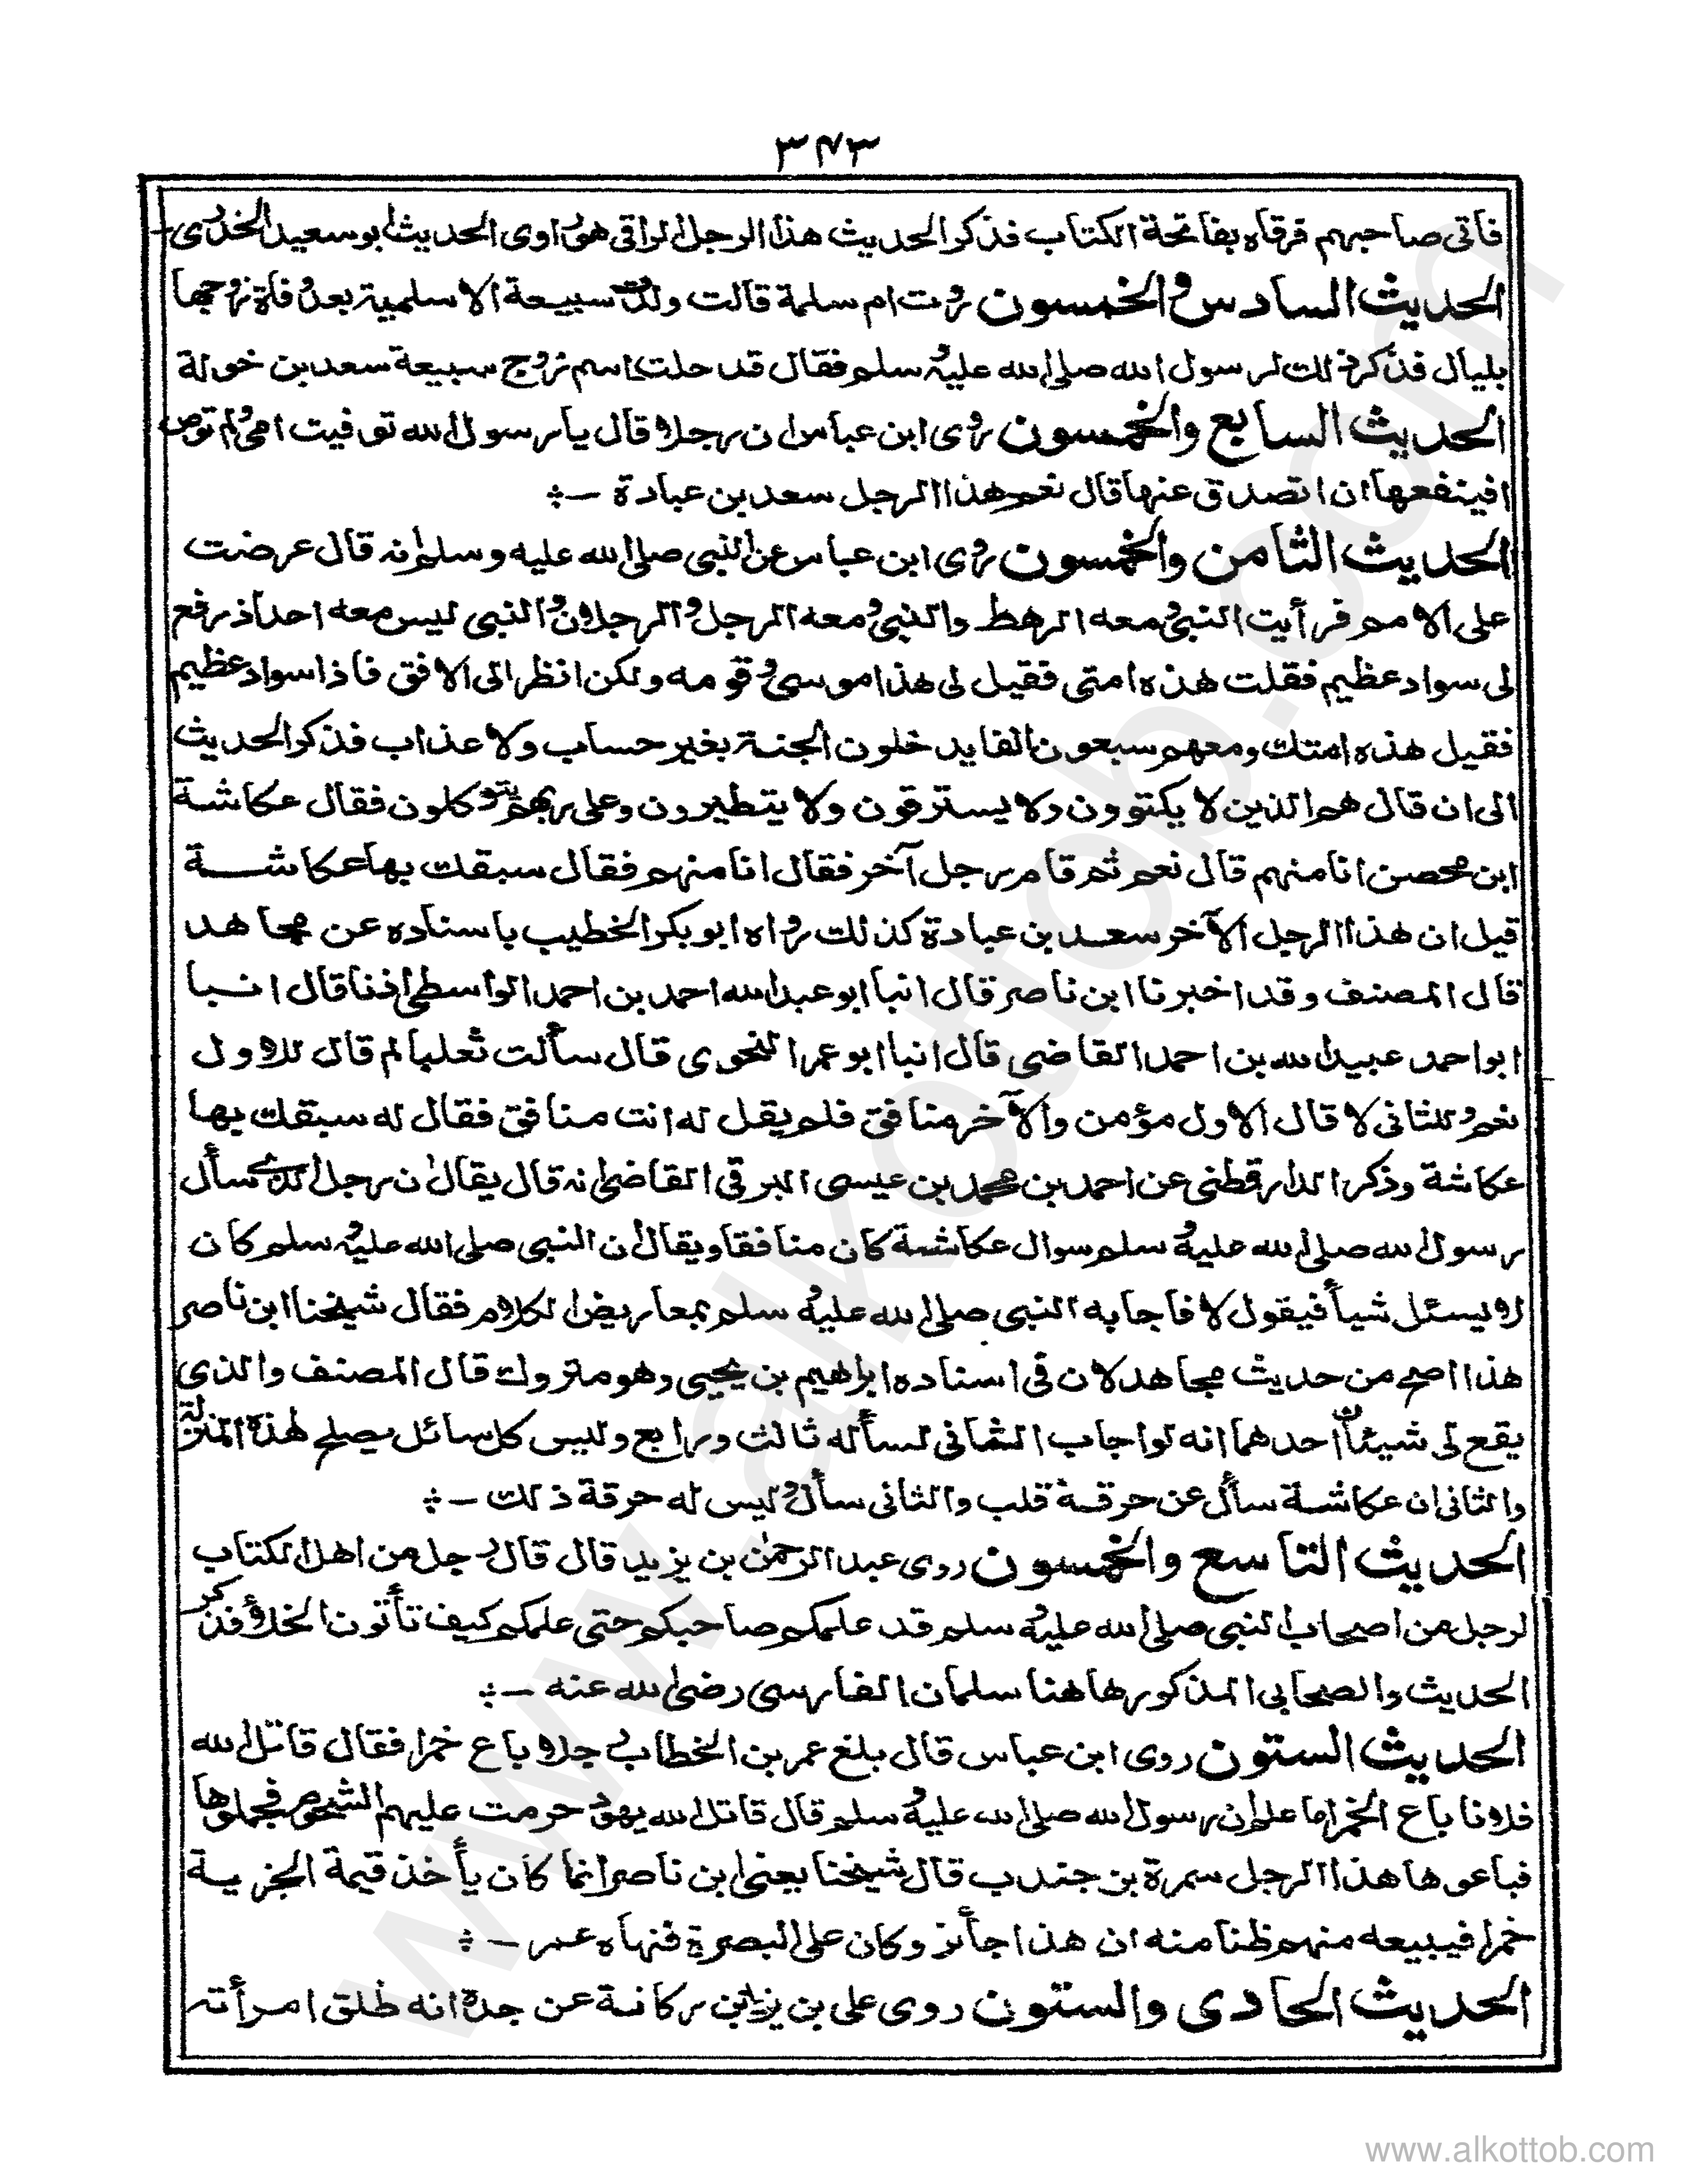 ٣٧٣
فأتى صاحبهم فرقاه بفاتحة الكتاب فذكر الحديث هذا الرجل الراقي هو راوى الحديث ابو سعيد الخدرى
الحديث السادس والخمسون روت ام سلمة قالت ولدت سبيعة الاسلمية بعد وفاة زوجها
بليال فذكر ذلك لرسول الله صلى الله عليه وسلم فقال قد حلت اسم زوج سبيعة سعد بن خولة
الحديث السابع والخمسون روى ابن عباس ان رجلا قال يا رسول الله توفيت امى ولم توص
افينفعها ان اتصدق عنها قال نعم هذا الرجل سعد بن عبادة –
الحديث الثامن والخمسون روى ابن عباس عن النبى صلى الله عليه وسلم انه قال عرضت
على الامم فرأيت النبى ومعه الرهط والنبى ومعه الرجل والرجلان والنبى ليس معه احد اذ رفع
لى سواد عظيم فقلت هذه امتى فقيل لى هذا موسى وقومه ولكن انظر الى الافق فاذا سواد عظيم
فقيل هذه امتك ومعهم سبعون الفا يدخلون الجنة بغير حساب ولا عذاب فذكر الحديث
الى ان قال هم الذين لا يكتوون ولا يسترقون ولا يتطيرون وعلى ربهم يتوكلون فقال عكاشة
ابن محصن انا منهم قال نعم ثم قام رجل آخر فقال انا منهم فقال سبقك بها عكاشة
قيل ان هذا الرجل الآخر سعد بن عبادة كذلك رواه ابو بكر الخطيب باسناده عن مجاهد
قال المصنف وقد اخبرنا ابن ناصر قال انبا ابو عبد الله احمد بن احمد الواسطى اذنا قال انبا
ابو احمد عبيد الله بن احمد القاضى قال انبا ابو عمر النحوى قال سألت ثعلبا لم قال للاول
نعم وللثانى لا قال الاول مؤمن والآخر منافق فلم يقل له انت منافق فقال له سبقك بها
عكاشة وذكر الدارقطنى عن احمد بن محمد بن عيسى البرقى القاضى انه قال يقال ان رجل الذى سأل
رسول الله صلى الله عليه وسلم سوال عكاشة كان منافقا ويقال ان النبى صلى الله عليه وسلم كان
لا يسئل شيأ فيقول لا فاجابه النبى صلى الله عليه وسلم بمعاريض الكلام فقال شيخنا ابن ناصر
هذا اصح من حديث مجاهد لان فى اسناده ابراهيم بن يحيى وهو متروك قال المصنف والذى
يقع لى شيئان احدهما انه لو اجاب الثانى لسأله ثالث ورابع وليس كل سائل يصلح لهذه المنزلة
والثانى ان عكاشة سأل عن حرقة قلب والثانى سأل وليس له حرقة ذلك –
الحديث التاسع والخمسون روى عبد الرحمن بن يزيد قال قال رجل من اهل الكتاب
لرجل من اصحاب النبى صلى الله عليه وسلم قد علمكم صاحبكم حتى علمكم كيف تأتون الخلاء فذكر
الحديث والصحابى المذكور هاهنا سلمان الفارسى رضى الله عنه –
الحديث الستون روى ابن عباس قال بلغ عمر بن الخطاب رجلا باع خمرا فقال قاتل الله
فلانا باع الخمر اما علم ان رسول الله صلى الله عليه وسلم قال قاتل الله يهود حرمت عليهم الشحوم فجملوها
فباعوها هذا الرجل سمرة بن جندب قال شيخنا يعنى ابن ناصر انما كان يأخذ قيمة الجزية
خمرا فيبيعه منهم ظنا منه ان هذا جائز وكان على البصرة فنهاه عمر –
الحديث الحادى والستون روى على بن يزيد بن ركانة عن جده انه طلق امرأته
www.alkottob.com
www.alkottob.com